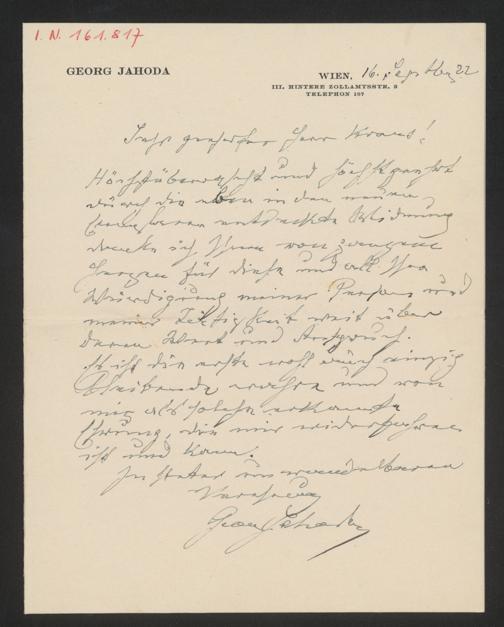 I. N. 161.817
GEORG JAHODA
WIEN, 16. Septbr 22
III, HINTERE ZOLLAMTSSTR. 3
TELEPHON 187
Sehr geehrter Herr Kraus!
Höchst überrascht und höchst geehrt
durch die eben in den neuen
entdeckte Widmung
danke ich Ihnen von ganzem
Herzen für diese und all Ihre
Würdigung meiner Person und
meiner Tätigkeit weit über
deren Wert und Anspruch.
Es ist die erste wohl auch einzig
bleibende wahre und von
mir als solche erkannte
Ehrung, die mir widerfahren
ist und kann.
In steter unwandelbarer
Verehrung
Georg Jahoda